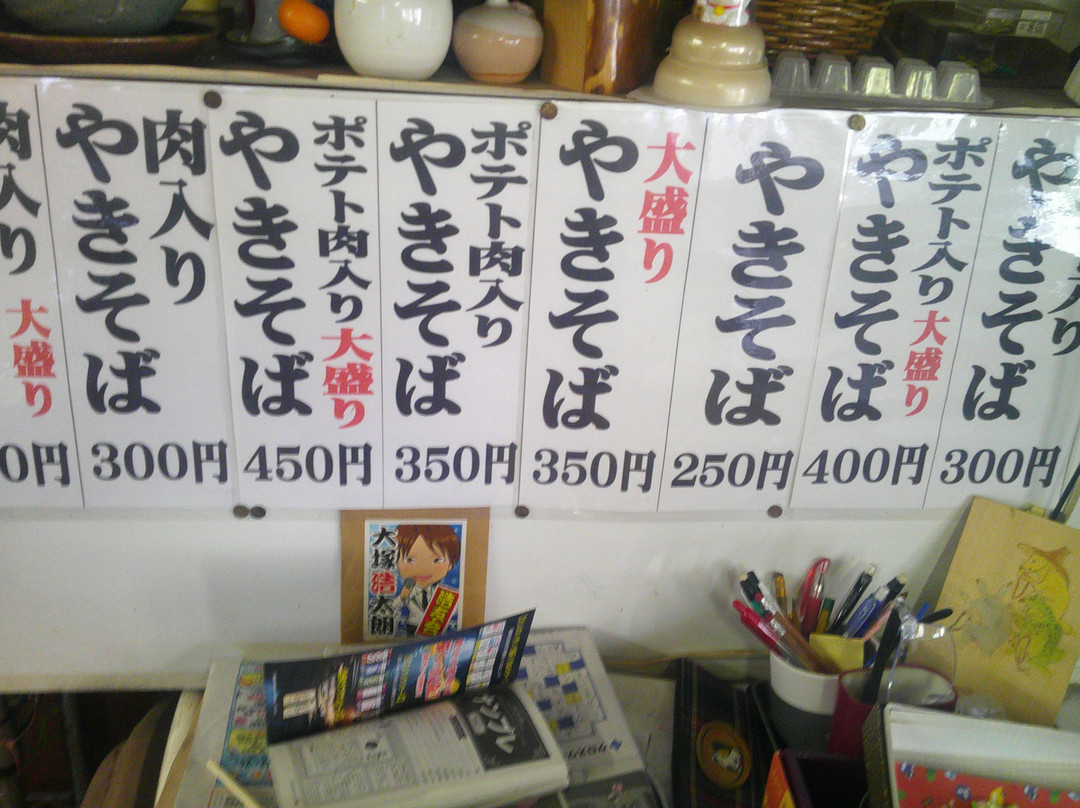 ポテト入り
やきそば
300円
ポテト入り大盛り
やきそば
400円
やきそば
250円
大盛り
やきそば
350円
ポテト肉入り
やきそば
350円
ポテト肉入り大盛り
やきそば
450円
肉入り
やきそば
300円
肉入り大盛り
0円
大塚浩太朗
ナンプレ